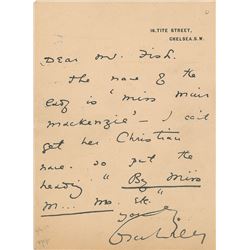 16, TITE STREET,
CHELSEA. S.W.
Dear Mr. Fish.
The name of the
lady is "Miss Muir
Mackenzie" — I can't
get her Christian
name. so put the
heading "By Miss
M... Mc. etc"